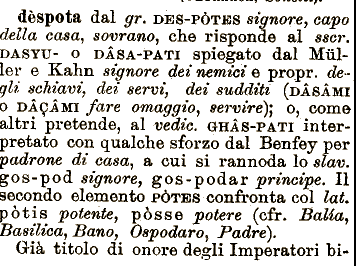 dèspota dal gr. DES-PÒTES signore, capo
della casa, sovrano, che risponde al sscr.
DASYU- O DÂSA-PATI spiegato dal Mül-
ler e Kahn signore dei nemici e propr. de-
gli schiavi, dei servi, dei sudditi (DÂSÂMI
o DÂÇÂMI fare omaggio, servire); o, come
altri pretende, al vedic. GHÂS-PATI inter-
pretato con qualche sforzo dal Benfey per
padrone di casa, a cui si rannoda lo slav.
gos-pod signore, gos-podar principe. Il
secondo elemento PÒTES confronta col lat.
pòtis potente, pòsse potere (cfr. Balía,
Basilica, Bano, Ospodaro, Padre).
Già titolo di onore degli Imperatori bi-